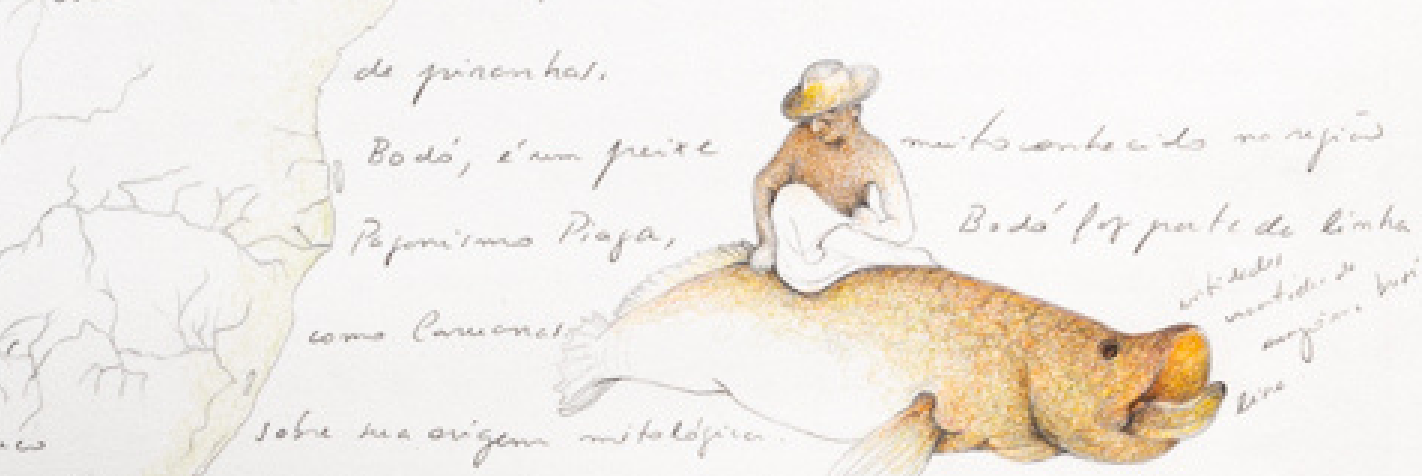 de piranhas.
Bodó, é um peixe muito conhecido na região
Paganismo Piaga, Bodó faz parte da linha
como Caruanas
sobre sua origem mitológica.